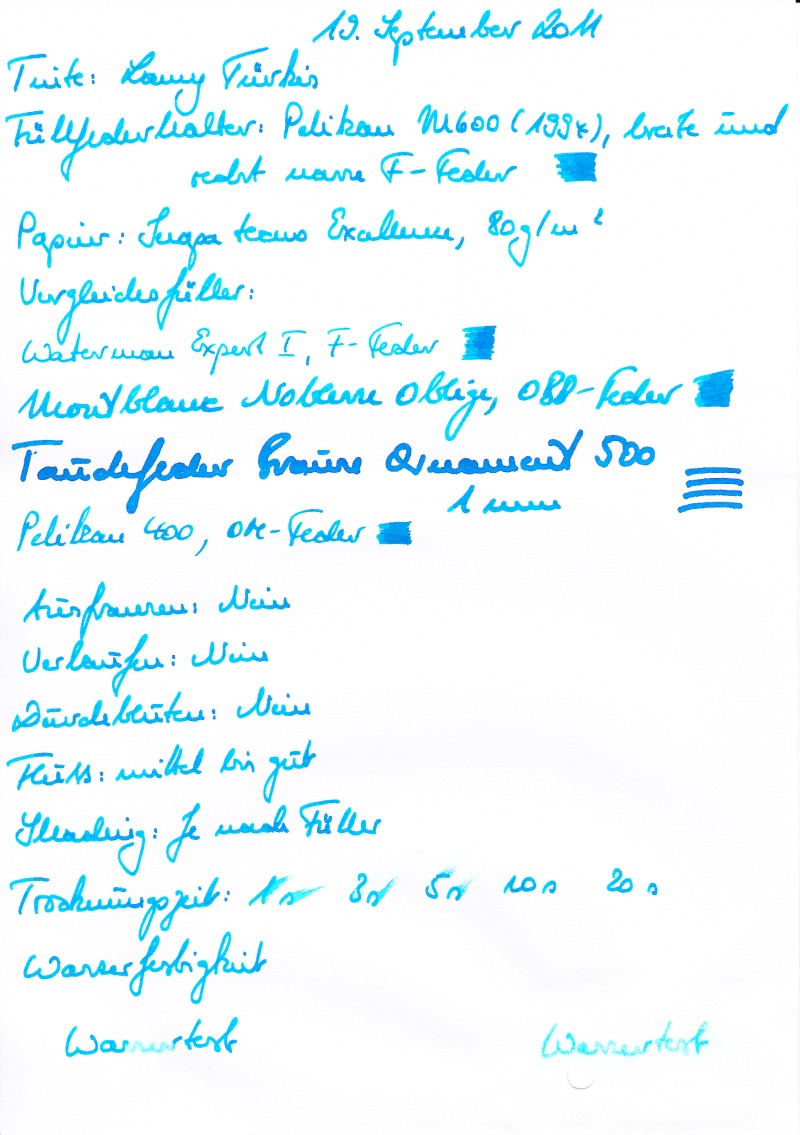 19. September 2011
Tinte: Lamy Türkis
Füllfederhalter: Pelikan M600 (199x), breite und
recht nasse F-Feder
Papier: Inapa tecno Excellence, 80g/m²
Vergleichsfüller:
Waterman Expert I, F-Feder
Montblanc Noblesse Oblige, OBB-Feder
Tauchfeder Brause Ornament 500
1 mm
Pelikan 400, OM-Feder
Ausfransen: Nein
Verlaufen: Nein
Durchbluten: Nein
Fluss: mittel bis gut
Shading: Je nach Füller
Trocknungszeit: 1s 3s 5s 10s 20s
Wasserfestigkeit
Wassertest Wassertest